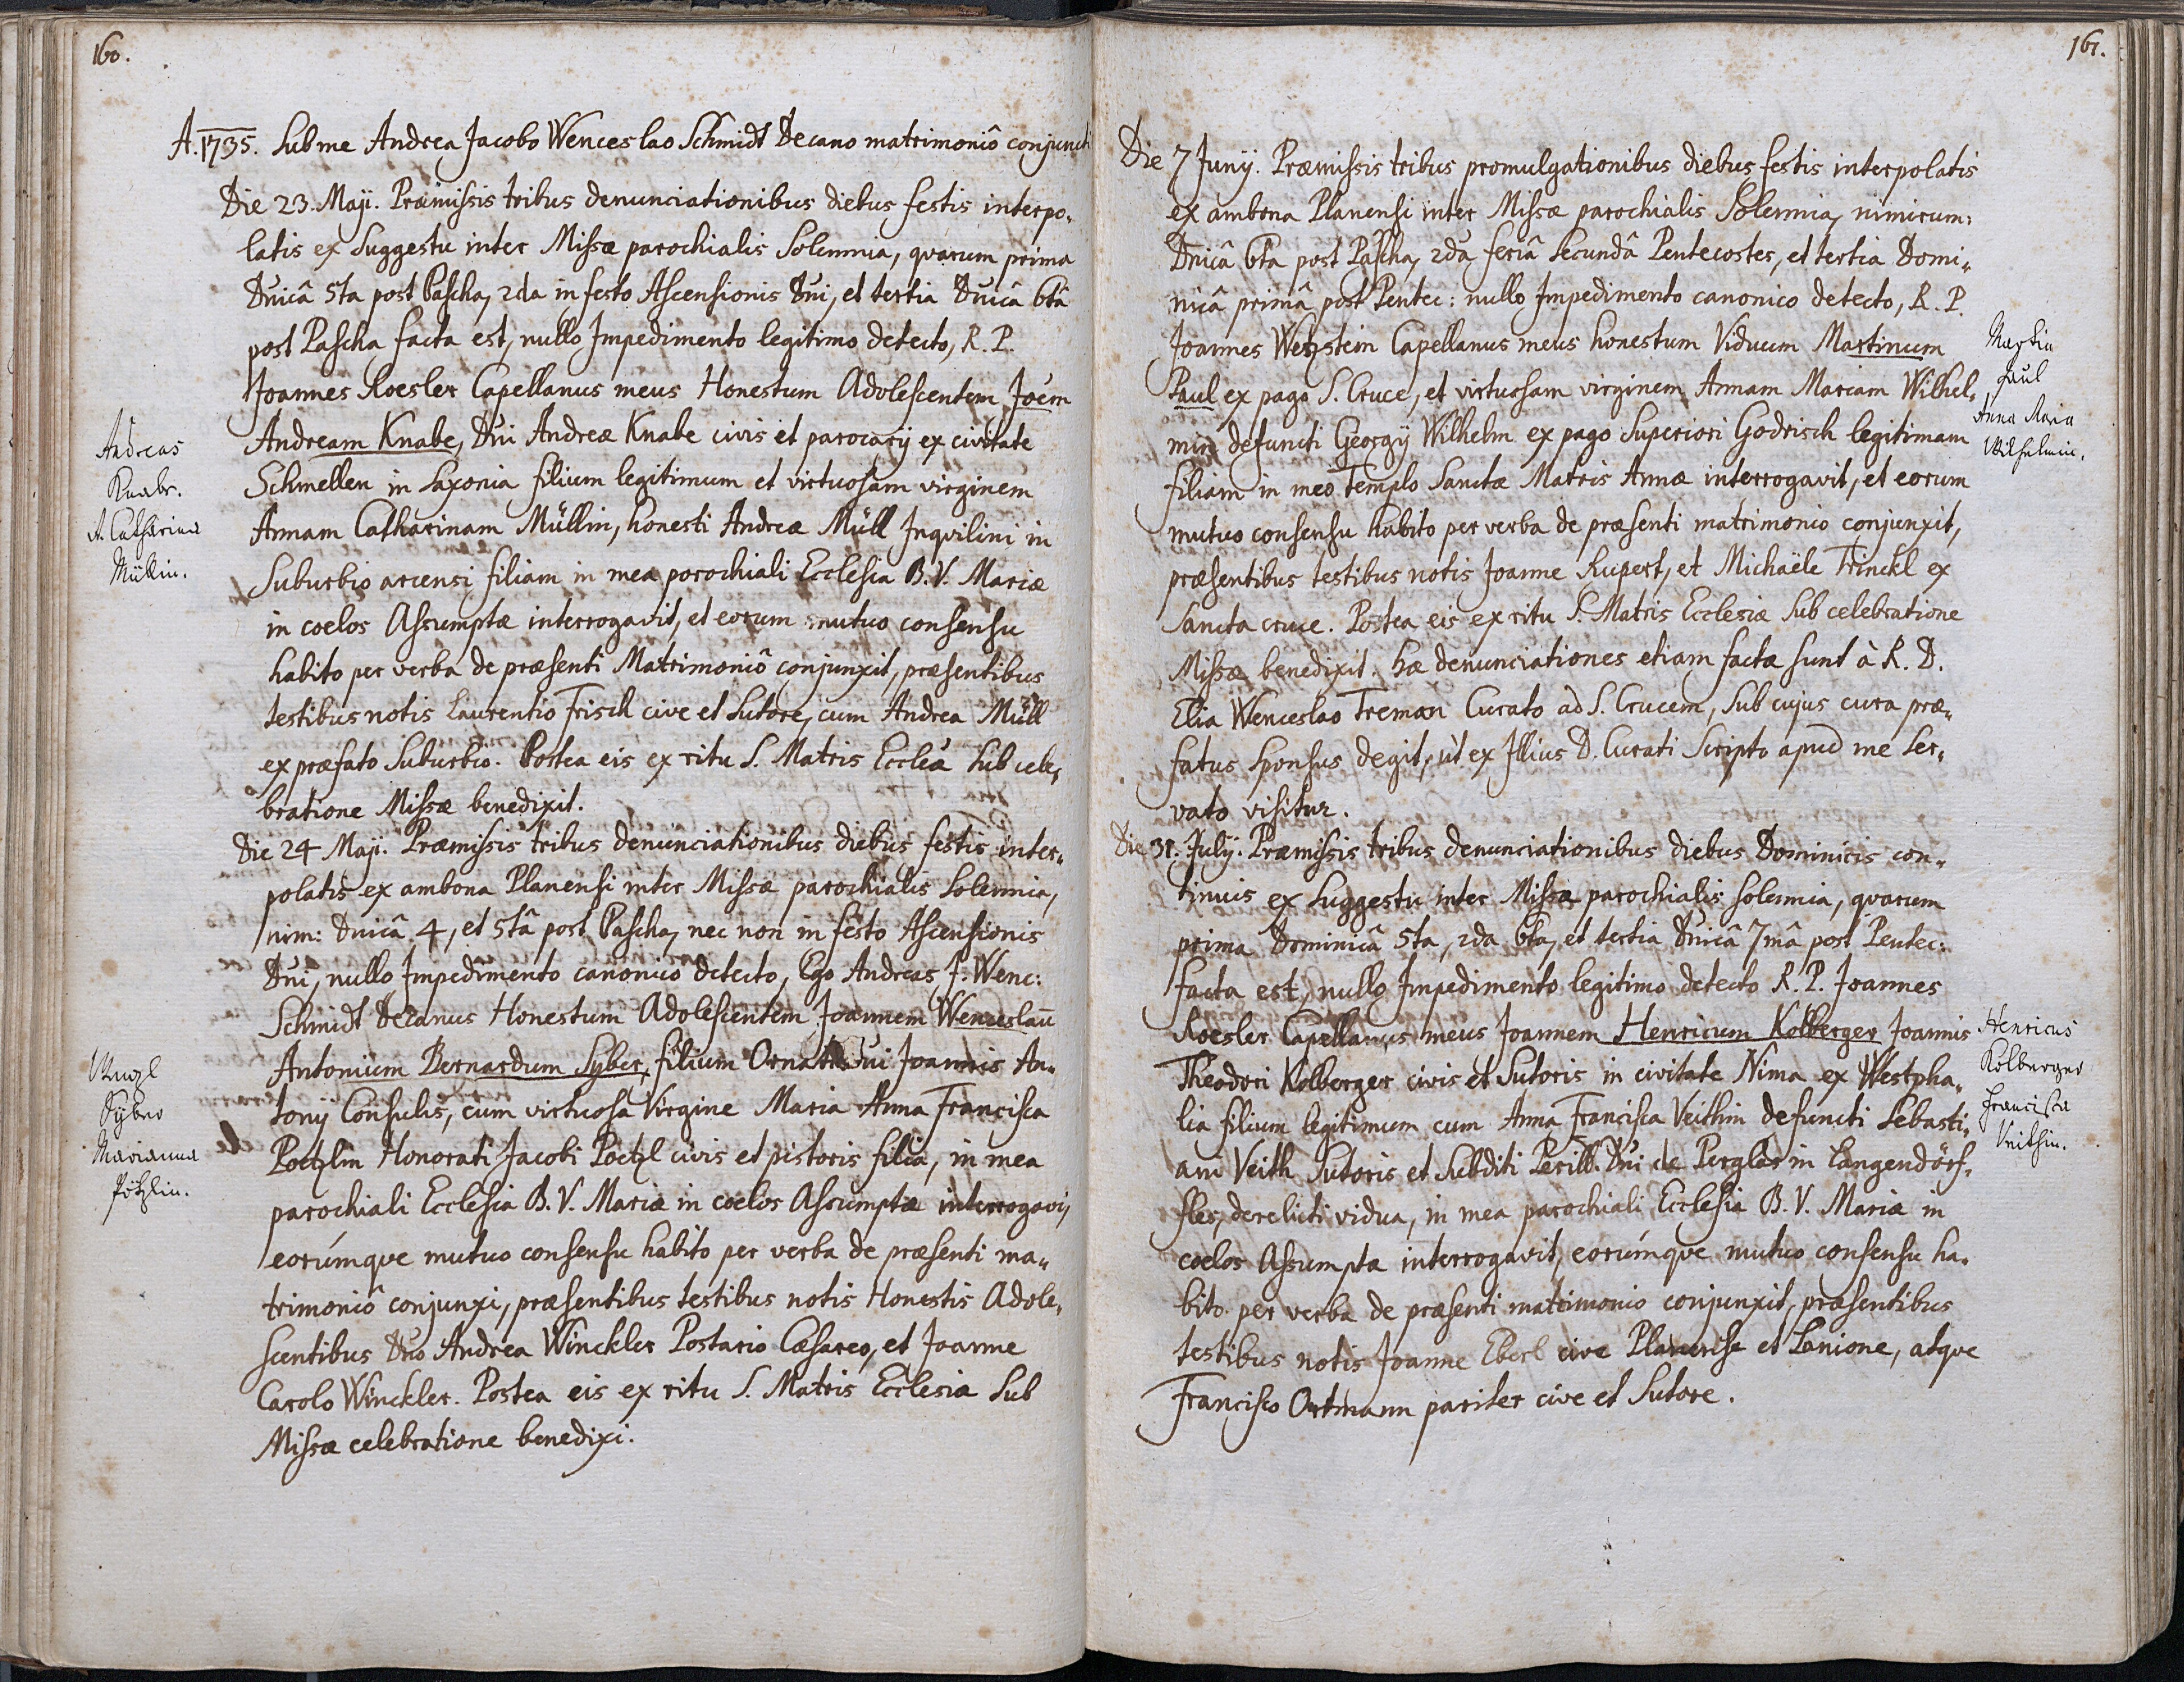 160.
A. 1735. Sub me Andrea Jacobo Wenceslao Schmidt Decano matrimoniô conjuncti
Die 23. Maji. Præmissis tribus denunciationibus diebus festis interpo„
latis ex Suggestu inter Missæ parochialis Solemnia, qvarum prima
Dnicâ 5ta post Pascha, 2da in festo Ascensionis Dni, et tertia Dnicâ 6tâ
post Pascha facta est, nullo Impedimento legitimo detecto, R. P.
Joannes Roesler Capellanus meus Honestum Adolescentem Joem
Andream Knabe, Dni Andreæ Knabe civis et parocarij ex civitate
Schmellen in Saxonia filium legitimum et virtuosam virginem
Annam Catharinam Müllin, honesti Andreæ Müll Inqvilini in
Suburbio arcensi filiam in mea porochiali Ecclesia B. V. Mariæ
in coelos Assumptæ interrogavit, et eorum mutuo consensu
habito per verba de præsenti Matrimoniô conjunxit, præsentibus
testibus notis Laurentio Frisch cive et Sutore, cum Andrea Müll
ex præfato Suburbio. Postea eis ex ritu S. Matris Eccleâ Sub cele„
bratione Missæ benedixit.
Andreas
Knabe.
A. Catharina
Müllin.
Die 24 Maji. Præmissis tribus denunciationibus diebus festis inter„
polatis ex ambona Planensi inter Missæ parochialis Solemnia,
nim: Dnicâ 4, et 5tâ post Pascha, nec non in festo Ascensionis
Dni, nullo Impedimento canonico detecto, Ego Andreas J: Wenc:
Schmidt Decanus Honestum Adolescentem Joannem Wenceslaū
Antonium Bernardum Syber, filium Ornati Dni Joannis An„
tonij Consulis, cum virtuosa Virgine Maria Anna Francisca
Poetzlin Honorati Jacobi Poetzl civis et pistoris filia, in mea
parochiali Ecclesia B. V. Mariæ in coelos Assumptæ interrogavi,
eorúmqve mutuo consensu habito per verba de præsenti ma„
trimoniô conjunxi, præsentibus testibus notis Honestis Adole„
scentibus Dno Andrea Winckler Postario Cæsareo, et Joanne
Carolo Winckler. Postea eis ex ritu S. Matris Ecclesiæ Sub
Missæ celebratione benedixi.
Wenzl
Syber
Marianna
Pötzlin.
161.
Die 7 Junij. Præmissis tribus promulgationibus diebus festis interpolatis
ex ambona Planensi inter Missæ parochialis Solemnia, nimirum:
Dnicâ 6ta post Pascha, 2da feriâ Secundâ Pentecostes, et tertia Domi„
nicâ primâ post Pentec: nullo Impedimento canonico detecto, R. P.
Joannes Wetzstein Capellanus meus honestum Viduum Martinum
Paul ex pago S. Cruce, et virtuosam virginem Annam Mariam Wilhel„
min defuncti Georgij Wilhelm ex pago Superiori Godrisch legitimam
filiam in meo Templo Sanctæ Matris Annæ interrogavit, et eorum
mutuo consensu habito per verba de præsenti matrimonio conjunxit,
præsentibus testibus notis Joanne Rupert, et Michaële Trinckl ex
Sancta cruce. Postea eis ex ritu S. Matris Ecclesiæ Sub celebratione
Missæ benedixit. Hæ denunciationes etiam factæ sunt à R. D.
Elia Wenceslao Treman Curato ad S. Crucem, Sub cujus cura præ„
fatus Sponsus degit, ùt ex Illius D. Curati Scripto apud me Ser„
vato visitur.
Martin
Paul
Anna Maria
Wilhelmin.
Die 31. Julij. Præmissis tribus denunciationibus diebus Dominicis con„
tinuis ex Suggestu inter Missæ parochialis solemnia, qvarum
prima Dominicâ 5ta, 2da 6ta, et tertia Dnicâ 7mâ post Pentec:
facta est, nullo Impedimento legitimo detecto R. P. Joannes
Roesler Capellanus meus Joannem Henricum Kolberger Joannis
Theodori Kolberger civis et Sutoris in civitate Nima ex Westpha„
lia filium legitimum cum Anna Francisca Veithin defuncti Sebasti„
ani Veith Sutoris et Subditi Perill. Dni de Perglas in Langendörf„
fles, derelicti vidua, in mea parochiali Ecclesia B. V. Mariæ in
coelos Assumptæ interrogavit, eorúmqve mutuo consensu ha„
bito per verba de præsenti matrimonio conjunxit, præsentibus
testibus notis Joanne Eberl cive Planensi et Lanione, atqve
Francisco Ortmann pariter cive et Sutore.
Henricus
Kolberger
Francisca
Veithin.